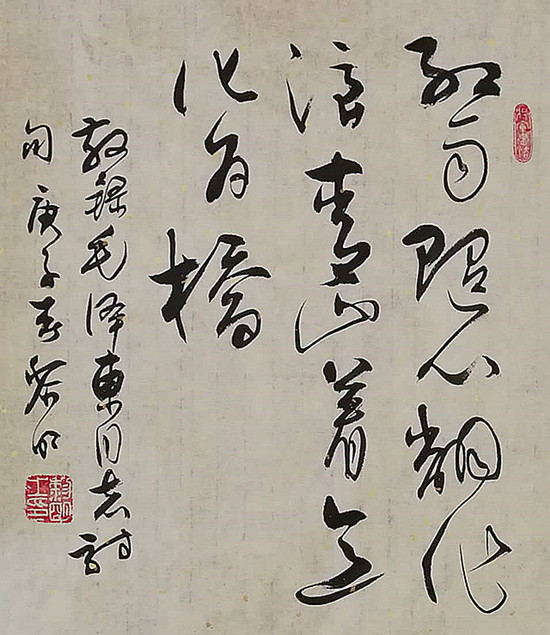 红雨随心翻作
浪青山着意
化为桥
敬錄毛泽東同志诗
句庚子春黎明